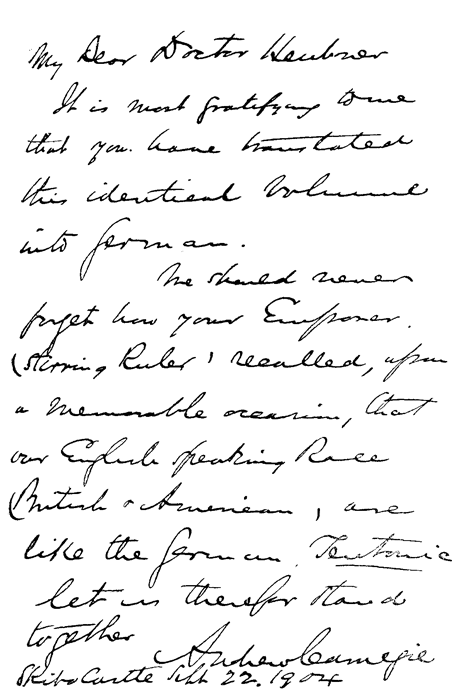 My Dear Doctor Heubner
It is most gratifying to me
that you have translated
this identical Volume
into German.
We should never
forget how your Emperor.
(Strong Ruler) recalled, upon
a memorable occasion, that
our English speaking Race
(British & American), are
like the German Teutonic
let us therefor stand
together
Andrew Carnegie
Skibo Castle Sept 22. 1904